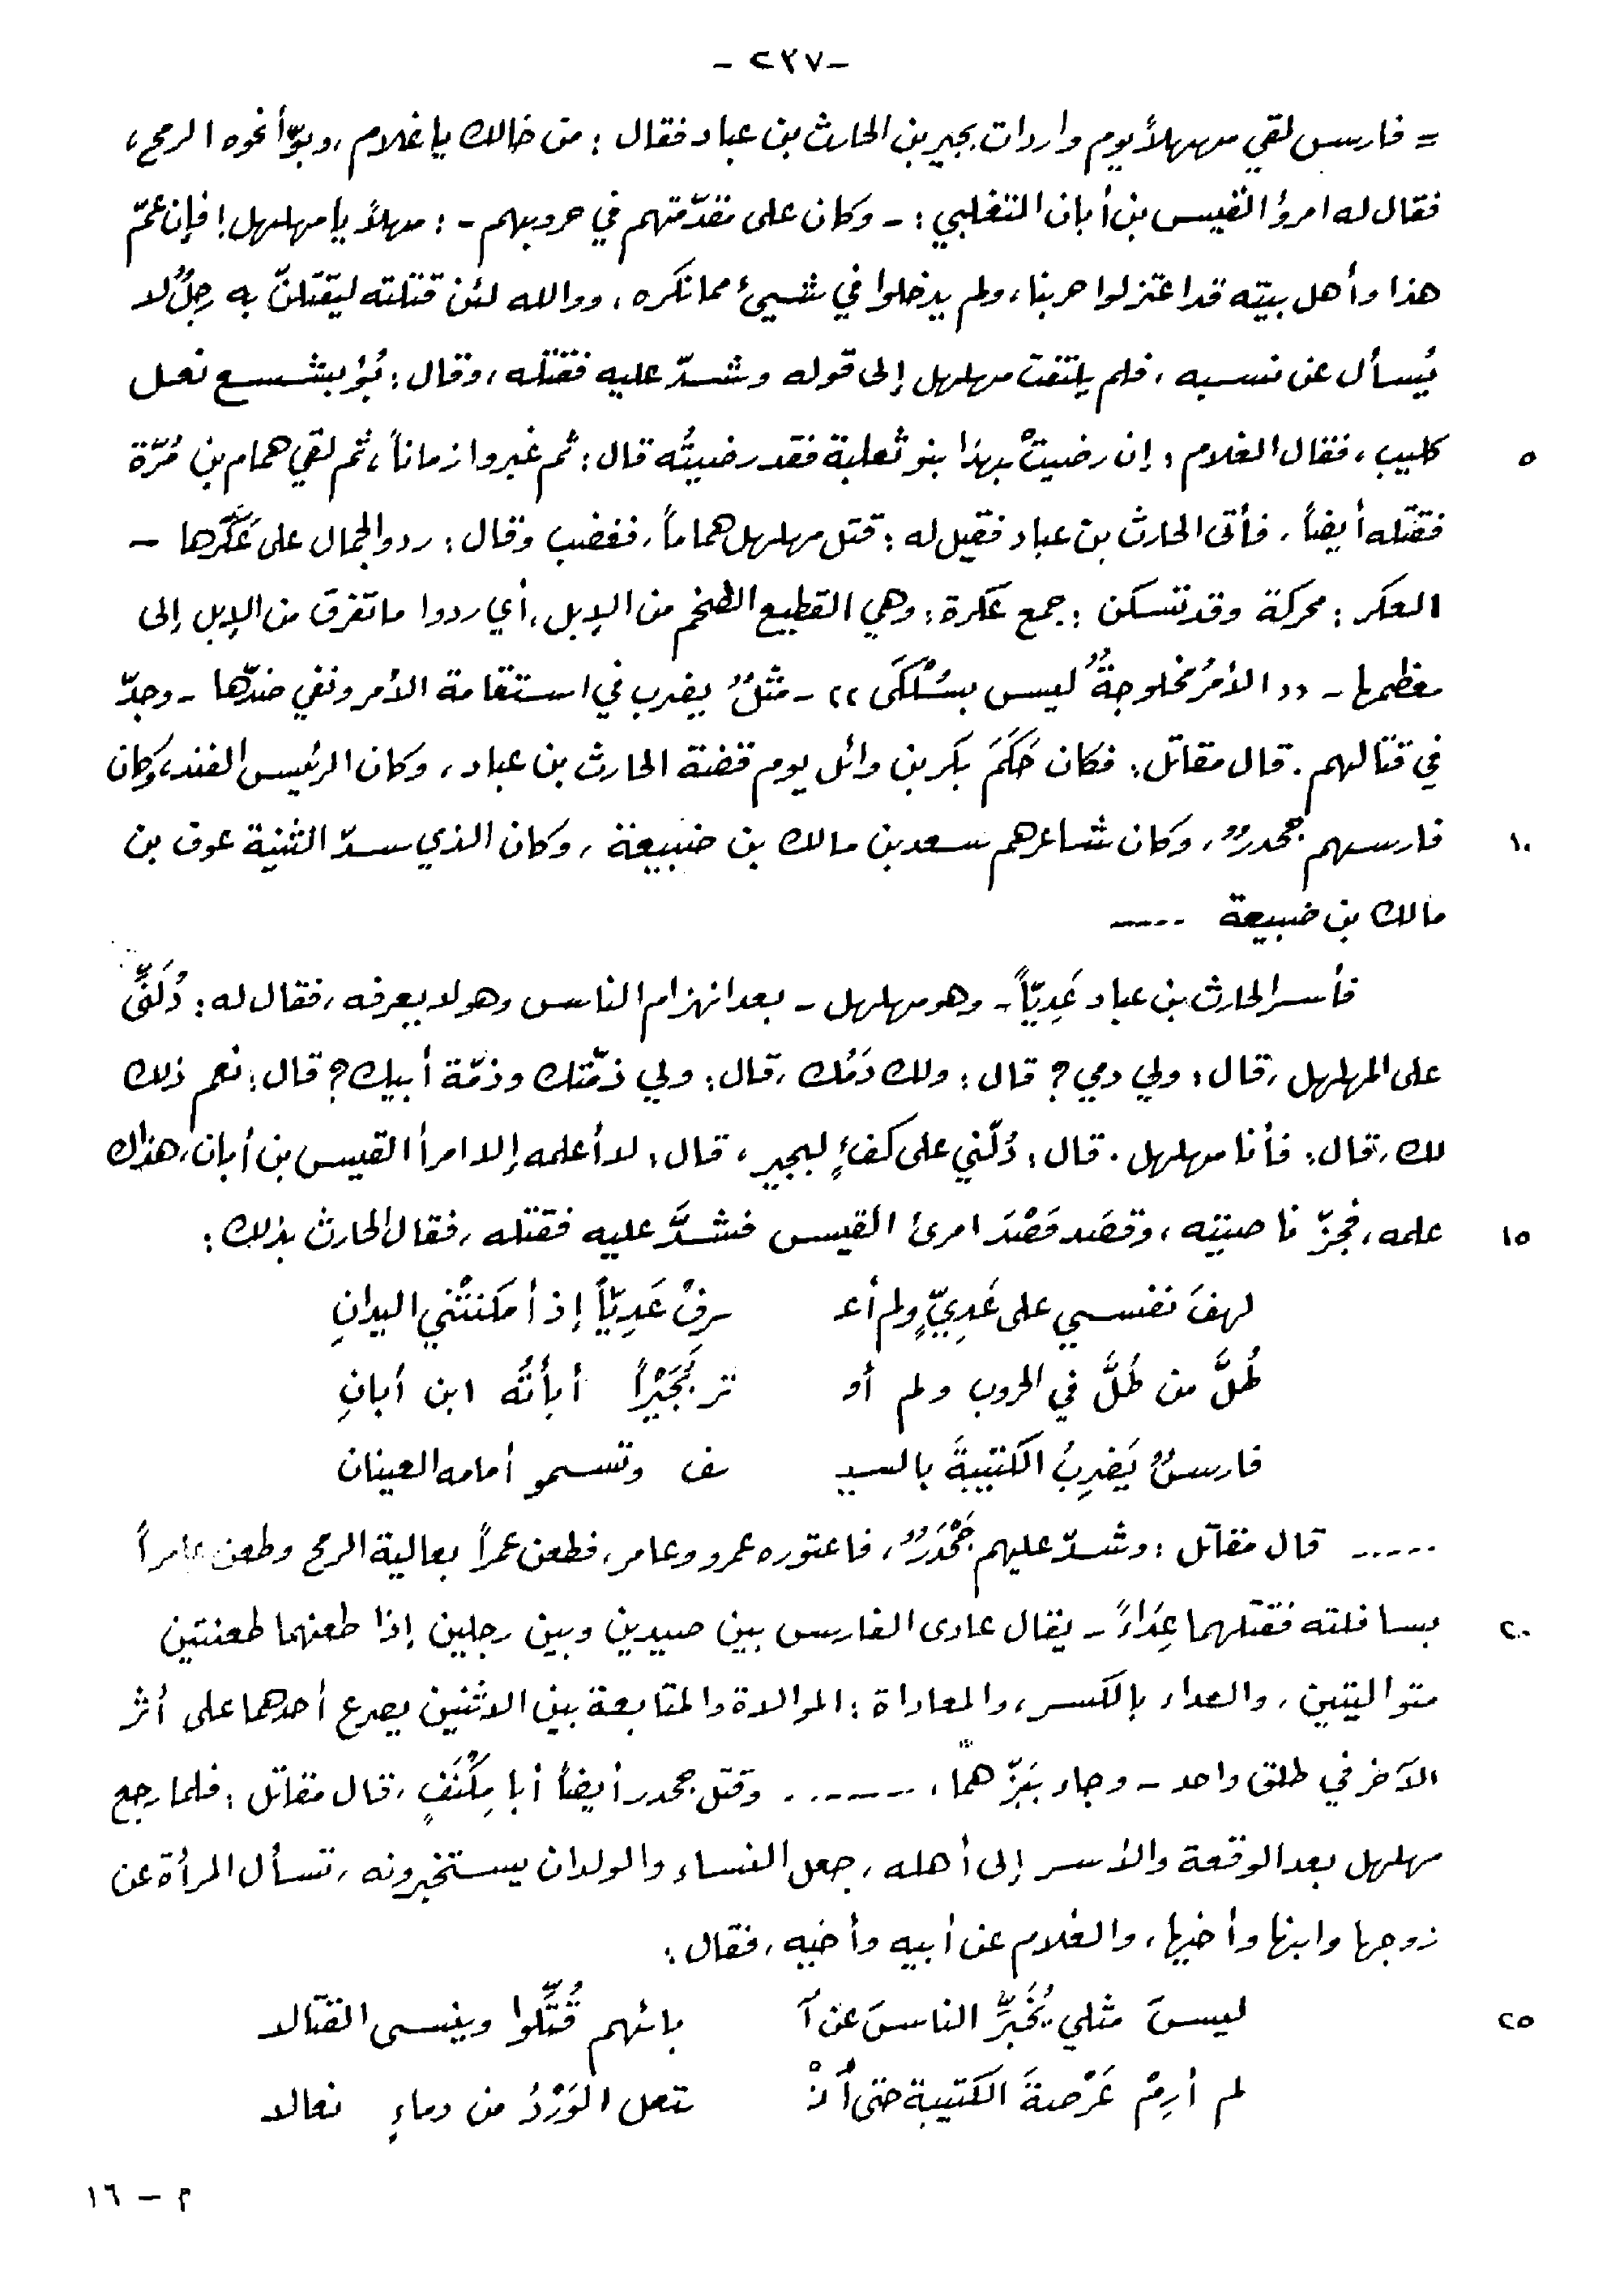 -٢٣٧-
= فارس لقي مهلهلاً يوم واردات بجير بن الحارث بن عباد فقال : من خالك يا غلام ، وبوّأ نحوه الرمح ،
فقال له امرؤ القيس بن أبان التغلبي : - وكان على مقدّمتهم في حروبهم - : مهلاً يا مهلهل ! فإن عمّ
هذا وأهل بيته قد اعتزلوا حربنا ، ولم يدخلوا في شيئ مما نكره ، ووالله لئن قتلته ليقتلنّ به رجلٌ لا
يُسأل عن نسبه ، فلم يلتفت مهلهل إلى قوله وشدّ عليه فقتله ، وقال : بُؤ بشسع نعل
كليب ، فقال الغلام : إن رضيتْ بهذا بنو ثعلبة فقد رضيتُه قال : ثم غبروا زماناً ، ثم لقي همام بن مُرّة ٥
فقتله أيضاً ، فأتى الحارث بن عباد فقيل له : قتل مهلهل هماماً ، فغضب وقال : ردوا لجمال على عَكَرها -
العكر : محركة وقد تسكن : جمع عكرة : وهي القطيع الضخم من الإبل ، أي ردوا ما تفرق من الإبل إلى
معظمها - (( الأمرُ مخلوجةٌ ليس بسُلْكَى )) - مثلٌ يضرب في استقامة الأمر ونفي ضدّها - وجدّ
في قتالهم . قال مقاتل : فكان حَكَمَ بكر بن وائل يوم قضة الحارث بن عباد ، وكان الرئيس الفند ، وكان
فارسهم جحدرٌ ، وكان شاعرهم سعد بن مالك بن ضبيعة ، وكان الذي سدّ الثنية عوف بن ١٠
مالك بن ضبيعة .....
فأسر الحارث بن عباد عَدِيّاً - وهو مهلهل - بعد انهزام الناس وهو لا يعرفه ، فقال له : دُلَنِّى
على المهلهل ، قال : ولي دمي ؟ قال : ولك دَمُك ، قال : ولي ذمّتك وذمّة أبيك ؟ قال : نعم ذلك
لك ، قال : فأنا مهلهل . قال : دُلّني على كفءٍ لبجير ، قال : لا أعلمه إلا امرأ القيس بن أبان ، هذاك
علمه ، فجزّ ناصيته ، وقصَد قَصْدَ امرئ القيس فشدَّ عليه فقتله ، فقال الحارث بذلك : ١٥
لهفَ نفسي على عَدِيٍّ ولم أعـ ـرِفْ عَدِيّاً إذ أمكنتْني اليدانِ
طُلَّ من طُلَّ في الحروب ولم أو تر بُجَيْراً أبأتُه ابن أبانِ
فارسٌ يَضرِبُ الكتيبةَ بالسيـ ـف وتسمو أمامه العينان
..... قال مقاتل : وشدّ عليهم جَحْدَرٌ ، فاعتوره عمرو وعامر ، فطعن عمراً بعالية الرمح وطعن عامراً
بسافلته فقتلهما عِدَاءً - يقال عادى الفارس بين صيدين وبين رجلين إذا طعنهما طعنتين ٢٠
متواليتين ، والعداء بالكسر ، والمعاداة : الموالاة والمتابعة بين الاثنين يصرع أحدهما على أثر
الآخر في طلق واحد - وجاء ببَزّهما ، ....... وقتل جحدر أيضاً أبا مِكْنَفٍ ، قال مقاتل : فلما رجع
مهلهل بعد الوقعة والأسر إلى أهله ، جعل النساء والولدان يستخبرونه ، تسأل المرأة عن
زوجها وابنها وأخيها ، والغلام عن أبيه وأخيه ، فقال :
ليسَ مثلي يُخَبِّرُ الناسَ عن آ بائهم قُتِّلوا وينسى القتالا ٢٥
لم أرِمْ عَرْصةَ الكتيبة حتى اُنْـ ـتعل الوَرْدُ من دماءٍ نعالا
م - ١٦